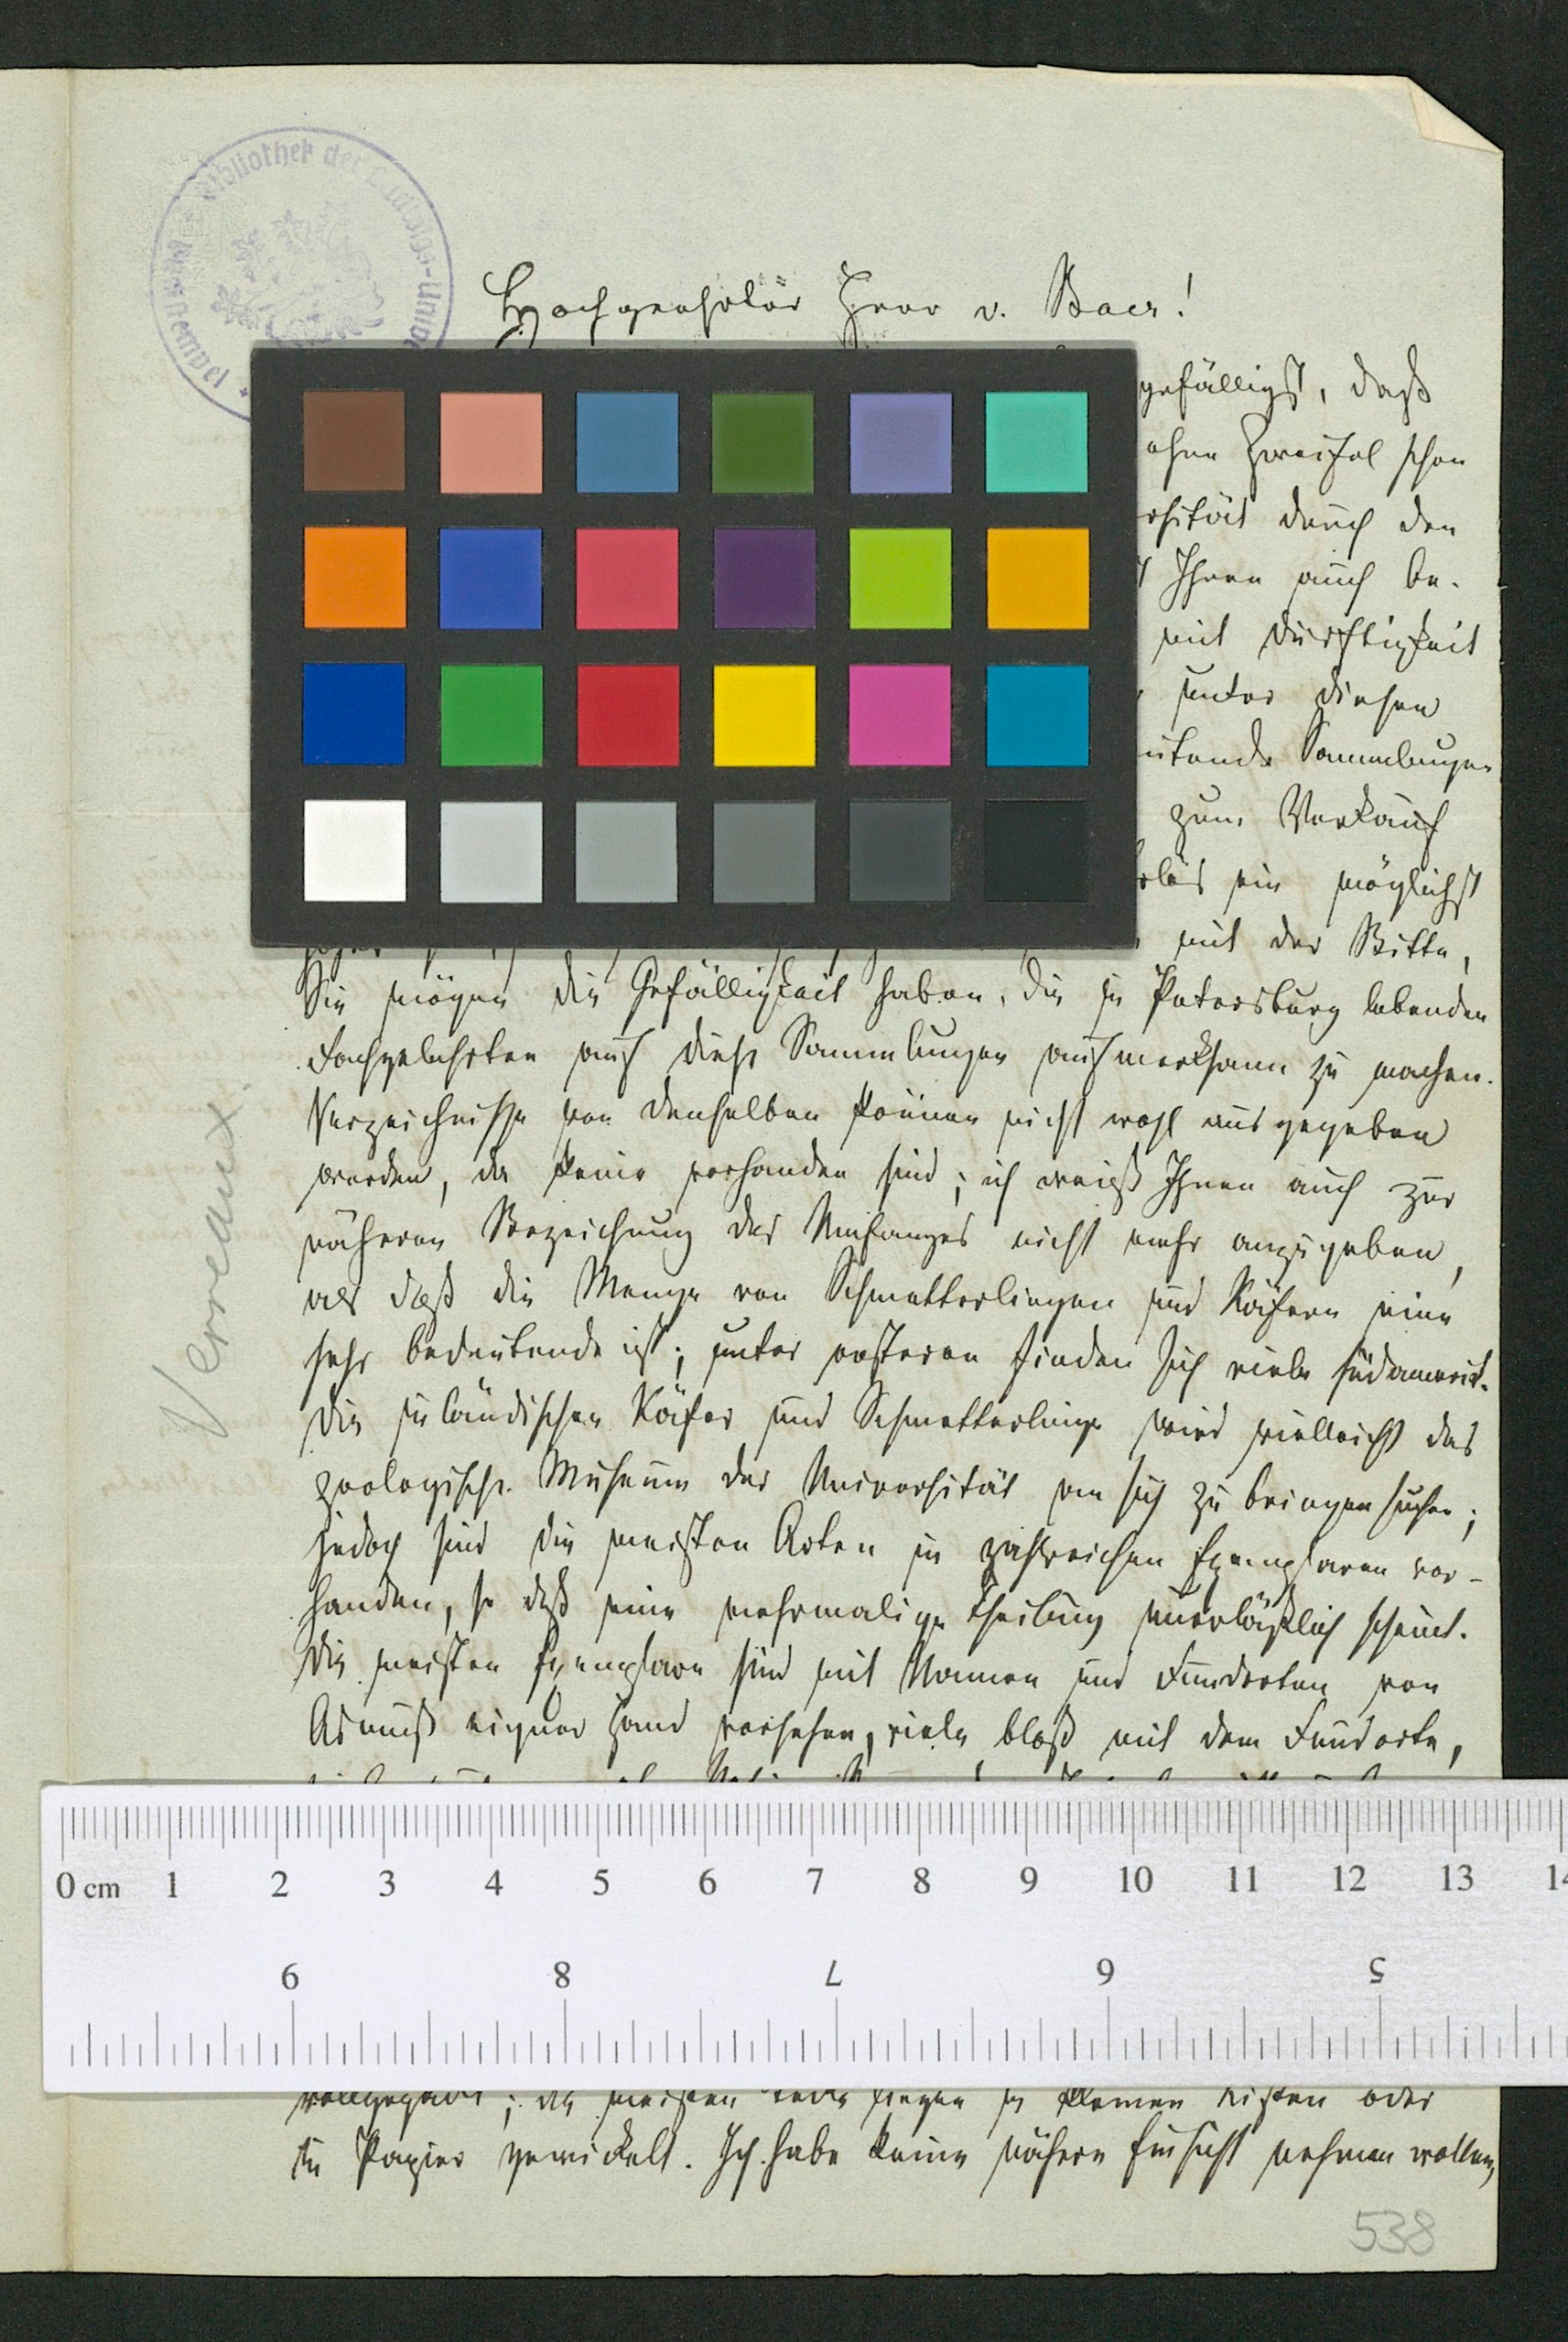 Bibliothek der Ludwigs-Unive
Hochgeehrter Herr v. Baer!
gefälligst, daß
ohne Zweifel schon
ersität durch den
Ihnen auch be-
mit Dürftigkeit
unter diesen
eutende Sammlungen
zum Verkauf
ein möglichst
mit der Bitte,
Sie mögen die Gefälligkeit haben, die in Petersburg lebenden
Fachgelehrten auf diese Sammlungen aufmerksam zu machen.
Verzeichnisse von denselben können nicht wohl ausgegeben
werden, da keine vorhanden sind; ich weiß Ihnen auch zur
näheren Bezeichnung des Umfanges nicht mehr anzugeben,
als daß die Menge von Schmetterlingen und Käfern eine
sehr bedeutende ist; unter ersteren finden sich viele südamerik.
Die inländischen Käfer und Schmetterlinge wird vielleicht das
zoologische Museum der Universität an sich zu bringen suchen;
jedoch sind die meisten Arten in zahlreichen Exemplaren vor-
handen, so daß eine mehrmalige Theilung unerläßlich scheint.
Die meisten Exemplare sind mit Namen und Fundorten von
Asmuß eigner Hand versehen, viele bloß mit dem Fundorte,
die meisten liegen in kleinen Kisten oder
in Papier gewickelt. Ich habe keine nähere Einsicht nehmen wollen,
Verreaux
538
0 cm 1 2 3 4 5 6 7 8 9 10 11 12 13 14
9 8 7 6 5